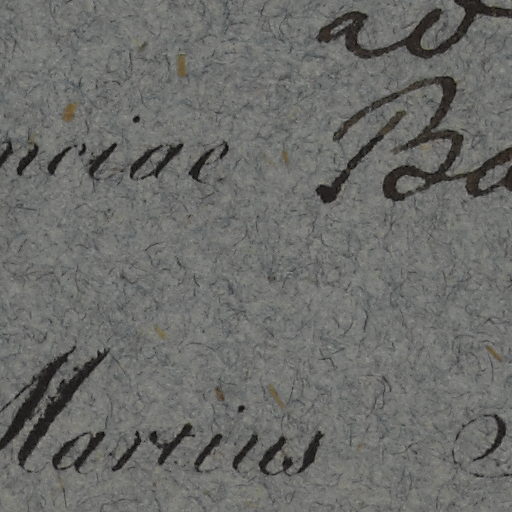 ad
nciae Ba
Martius